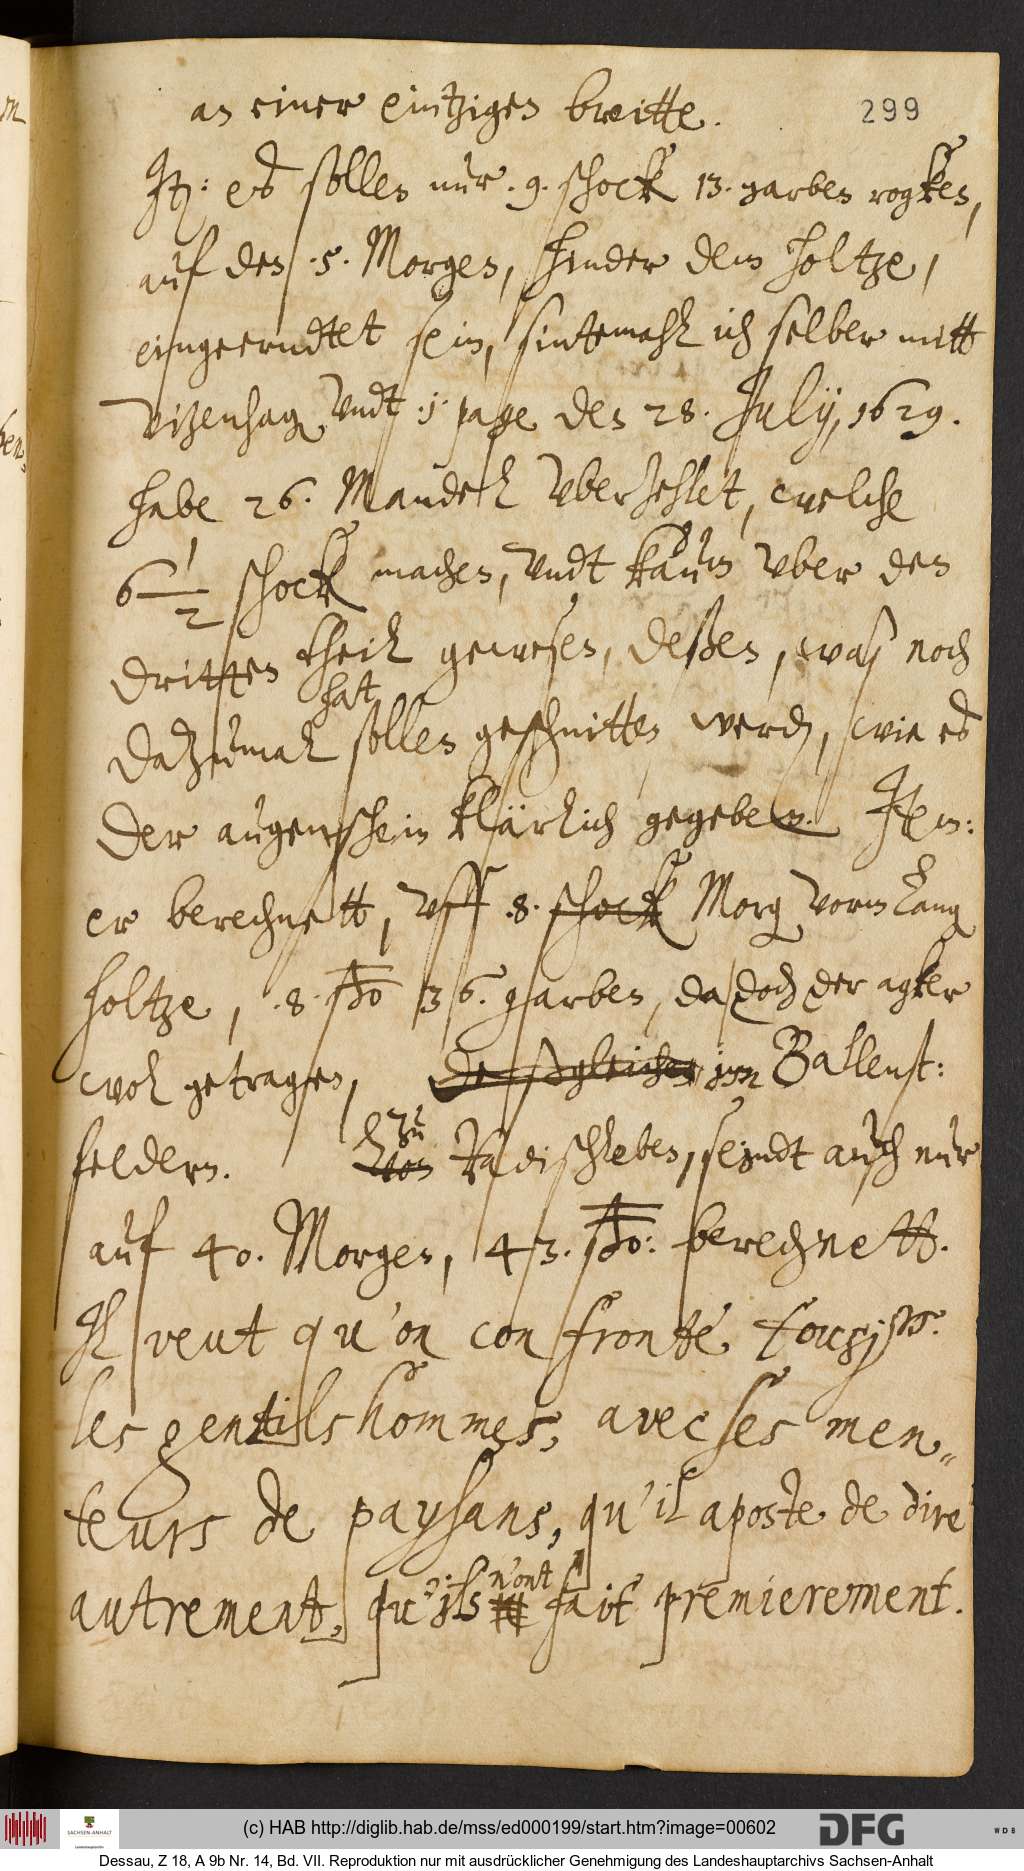 299
an einer eintzigen breitte.
Jt: es sollen nur .9. schock 13. garben rogken,
auf den .5. Morgen, hinder dem holtze,
eingeerndtet sein, sintemahl ich selber mitt
Vitzenhag Vndt .j. page den 28. Julij, 1629.
habe 26. Mandel vberzehlet, welche
6 1/2 schock machen, vndt kaum vber den
dritten theil gewesen, deßen, was noch
hat
dazumal sollen geschnitten werden, wie es
der augenschein klärlich gegeben. Jtem:
er berechnett, vff .8. schock Morg vorm Lang
holtze, .8. ßo 36. garben, da doch der agker
wol getragen, deßgleichen im Ballenst:
feldern. zu
von Radischleben, seindt auch nur
auf 40. Morgen, 43. ßo: berechnett.
Il veut qu'on confronte
les gentilshommes, avec ses men„
teurs de paysans, qu'il aposte de dire
n'ont
autrement, qu'ils fait premierement.
(c) HAB http://diglib.hab.de/mss/ed000199/start.htm?image=00602
SACHSEN-ANHALT
Landeshauptarchiv
DFG
WDB
Dessau, Z 18, A 9b Nr. 14, Bd. VII. Reproduktion nur mit ausdrücklicher Genehmigung des Landeshauptarchivs Sachsen-Anhalt